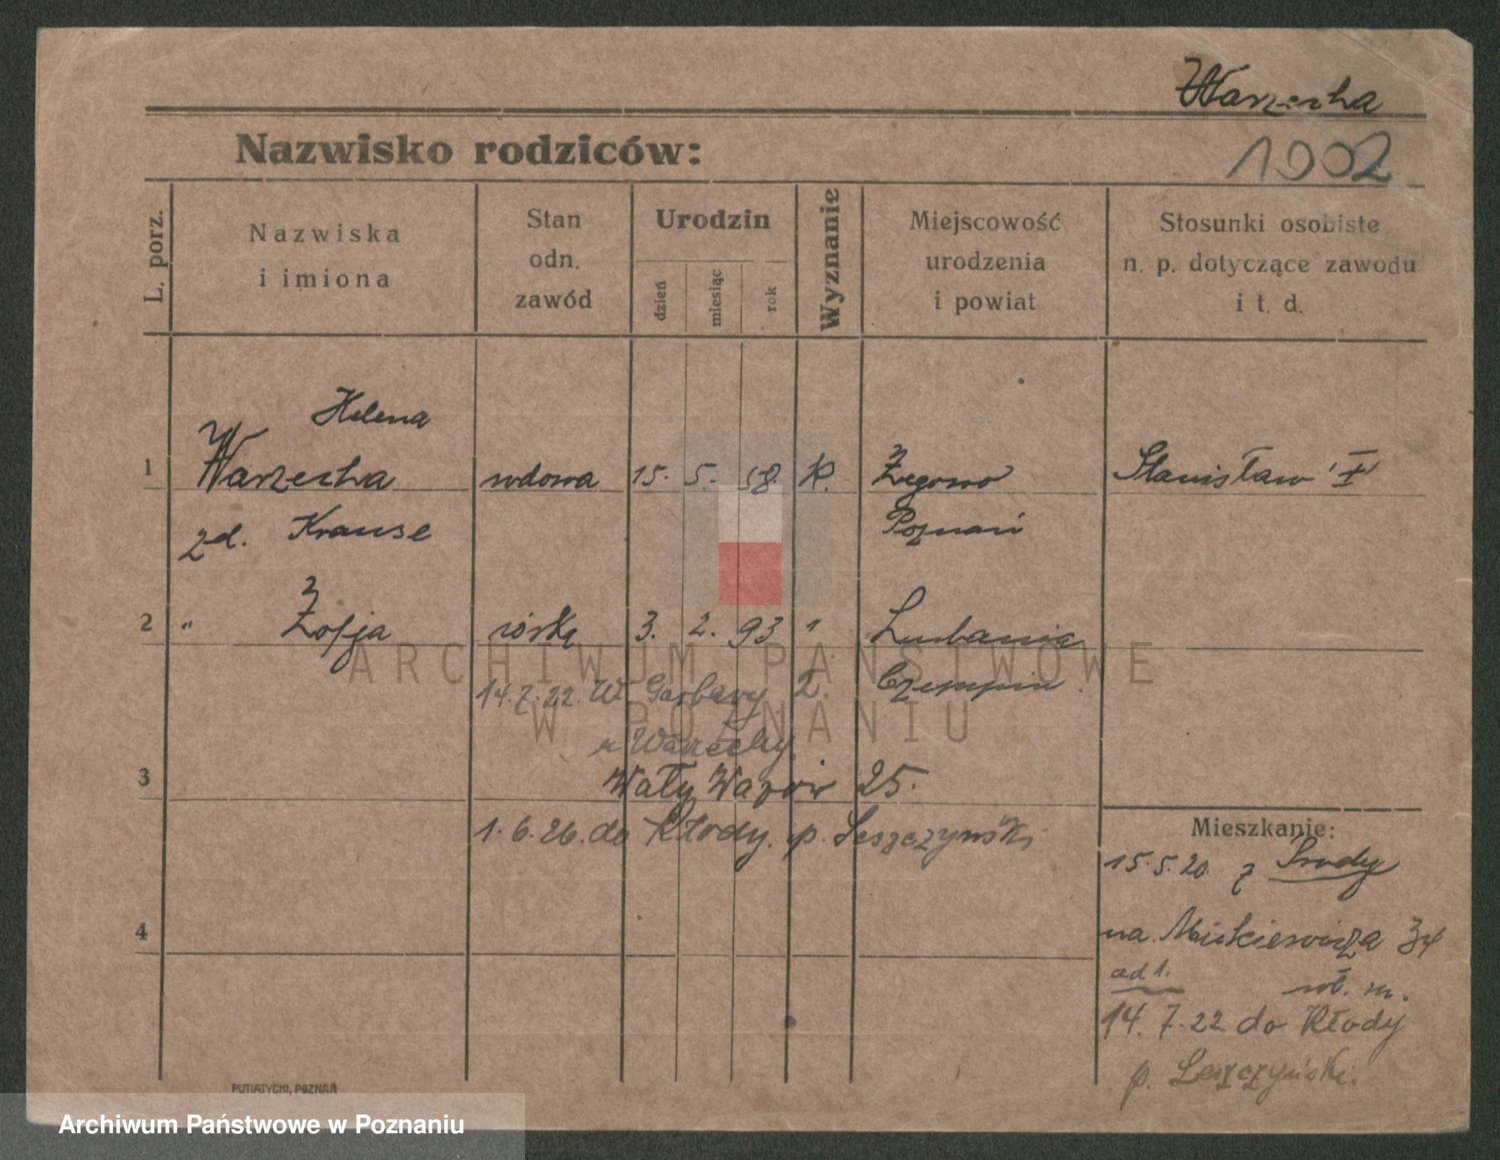 Warzecha
Nazwisko rodziców:
1902
L. porz.
Nazwiska
i imiona
Stan
odn.
zawód
Urodzin
dzień
miesiąc
rok
Wyznanie
Miejscowość
urodzenia
i powiat
Stosunki osobiste
n. p. dotyczące zawodu
i t. d.
Helena
1 Warzecha wdowa 15. 5. 58 K. Żegowo Stanisław
zd. Krause Poznań
2 " Zofja córka 3. 2. 93 " Lubania
ARCHIWUM PAŃSTWOWE
14.7.22. W. Garbary 2. Czempin
W POZNANIU
u Warzechy
3 Wały Wazów 25.
1.6.26. do Kłody. p. Leszczyński
Mieszkanie:
15.5.20. z Środy
4 na Mickiewicza 34
ad 1.
14.7.22 do Kłody
p. Leszczyński.
PUTIATYCKI, POZNAŃ
Archiwum Państwowe w Poznaniu